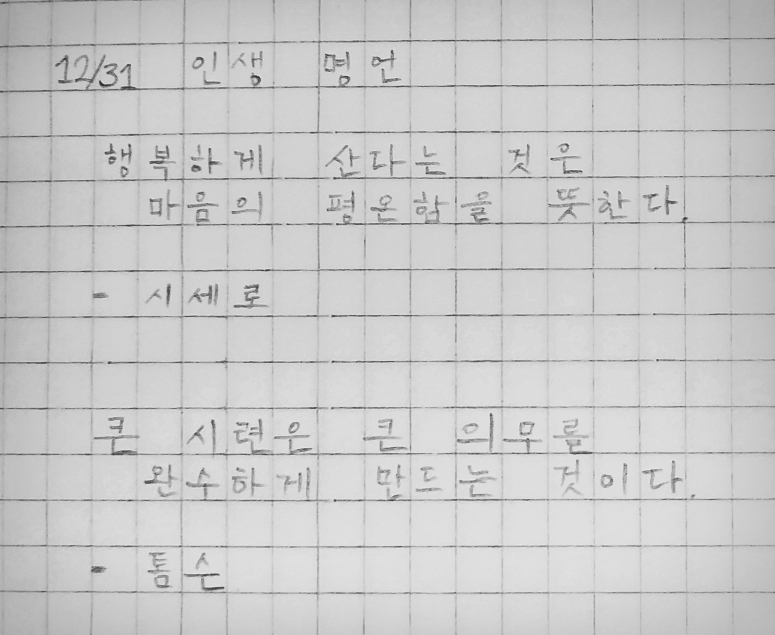 12/31 인생 명언
행복하게 산다는 것은
마음의 평온함을 뜻한다.
- 시세로
큰 시련은 큰 의무를
완수하게 만드는 것이다.
- 톰슨